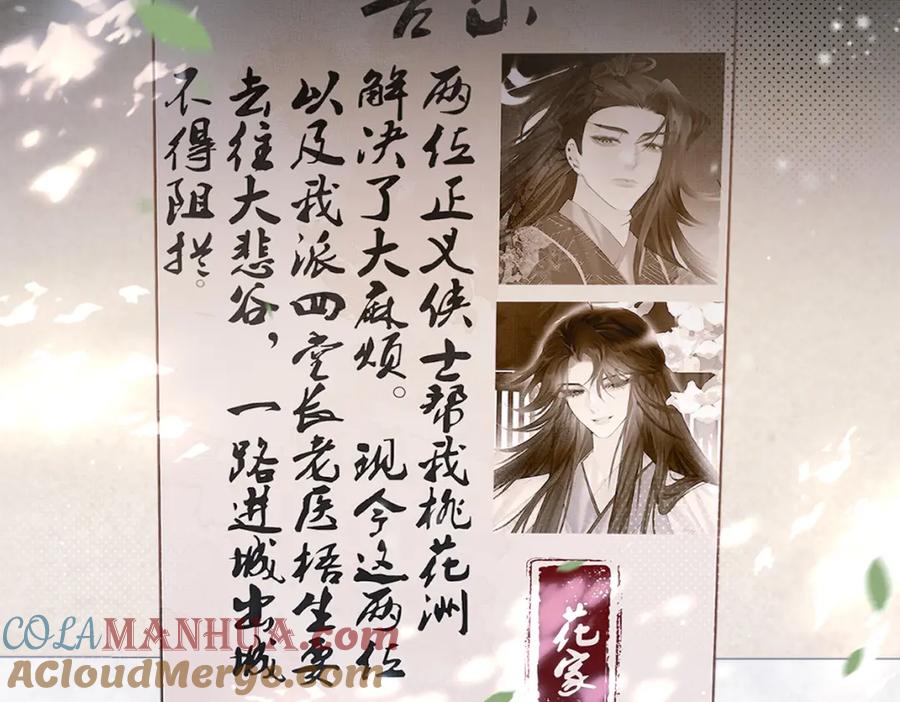 告示
两位正义侠士帮我桃花洲
解决了大麻烦。现今这两位
以及我派四堂长老医梧生要
去往大悲谷，一路进城出城
不得阻拦。
花家
COLAMANHUA.com
ACloudMerge.com